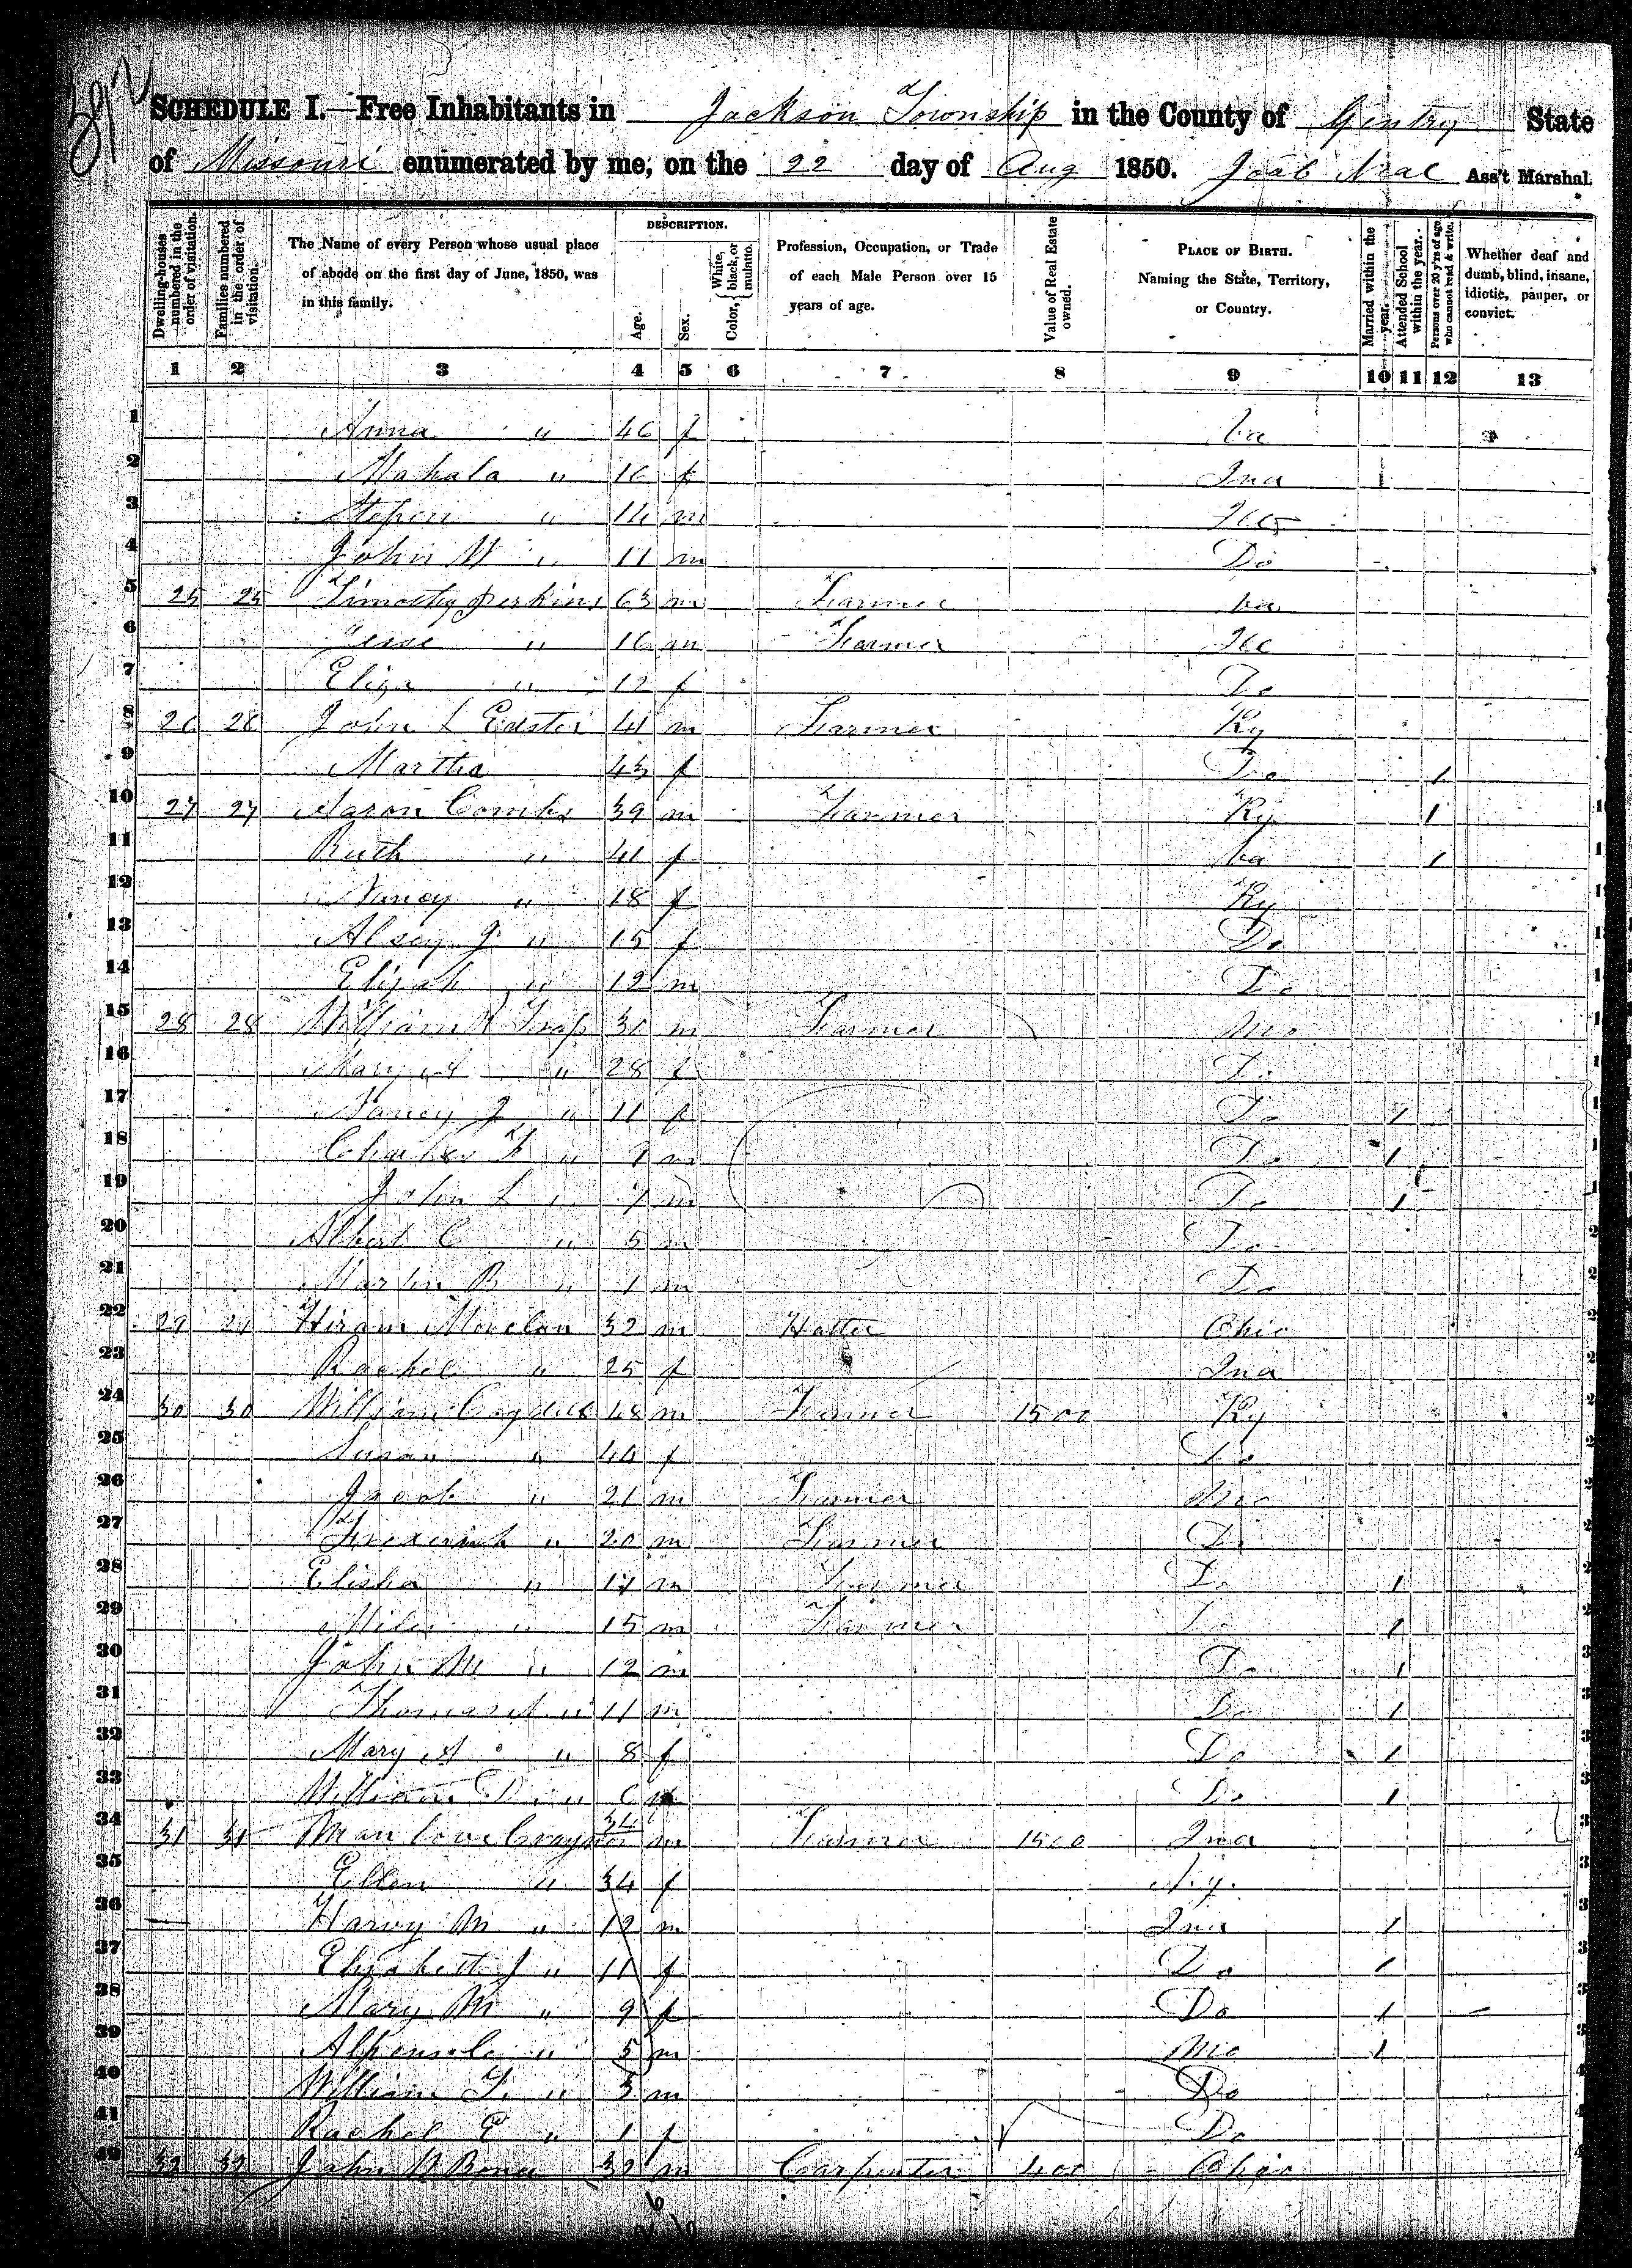 SCHEDULE I.—Free Inhabitants in Jackson Township in the County of Gentry State
of Missouri enumerated by me, on the 22 day of Aug 1850. Joab Neal Ass't Marshal.
Dwelling-houses numbered in the order of visitation.
Families numbered in the order of visitation.
The Name of every Person whose usual place of abode on the first day of June, 1850, was in this family.
DESCRIPTION.
Age.
Sex.
Color, { White, black, or mulatto.
Profession, Occupation, or Trade of each Male Person over 15 years of age.
Value of Real Estate owned.
PLACE OF BIRTH. Naming the State, Territory, or Country.
Married within the year.
Attended School within the year.
Persons over 20 y'rs of age who cannot read & write.
Whether deaf and dumb, blind, insane, idiotic, pauper, or convict.
1 2 3 4 5 6 7 8 9 10 11 12 13
1 Anna " 46 f Va
2 Mahala " 16 f Ina
3 Stepen " 14 m
4 John W " 11 m Do
5 25 25 Timothy Perkins 63 m Farmer Va
6 Jesse " 16 m Farmer
7 Eliza " 12 f Do
8 26 26 John L 41 m Farmer Ky
9 Martha 43 f Do 1
10 27 27 Aaron Combs 39 m Farmer Ky 1
11 Ruth " 41 f Va 1
12 Nancy " 18 f Ky
13 Alsey J " 15 f Do
14 Elijah " 12 m Do
15 28 28 William Trap m Farmer Mo
16 Mary A " 28 f Do
17 Nancy J " 11 f Do 1
18 Charles F " 9 m Do 1
19 John L " 7 m Do 1
20 Albert C " 5 m Do
21 Martin B " 1 m Do
22 29 29 Hiram 32 m Hatter Ohio
23 Rachel " 25 f Ina
24 30 30 William Cogdill 48 m Farmer 1500 Ky
25 Susan " f Do
26 Jacob " 21 m Farmer Mo
27 Frederick " 20 m Farmer Do
28 Elisha " 17 m Farmer Do 1
29 Miles " 15 m Farmer Do 1
30 John M " 12 m Do 1
31 Thomas " 11 m Do 1
32 Mary A " 8 f Do 1
33 William D " 6 m Do 1
34 31 31 Man love 34 m Farmer 1500 Ina
35 Ellen " 34 f N.y.
36 Harvy M " 12 m Ina 1
37 Elizabeth J " 11 f Do 1
38 Mary M " 9 f Do 1
39 " 5 m Mo 1
40 William F. " 3 m Do
41 Rachel E " 1 f Do
42 32 32 John W 32 m Carpenter 400 Ohio